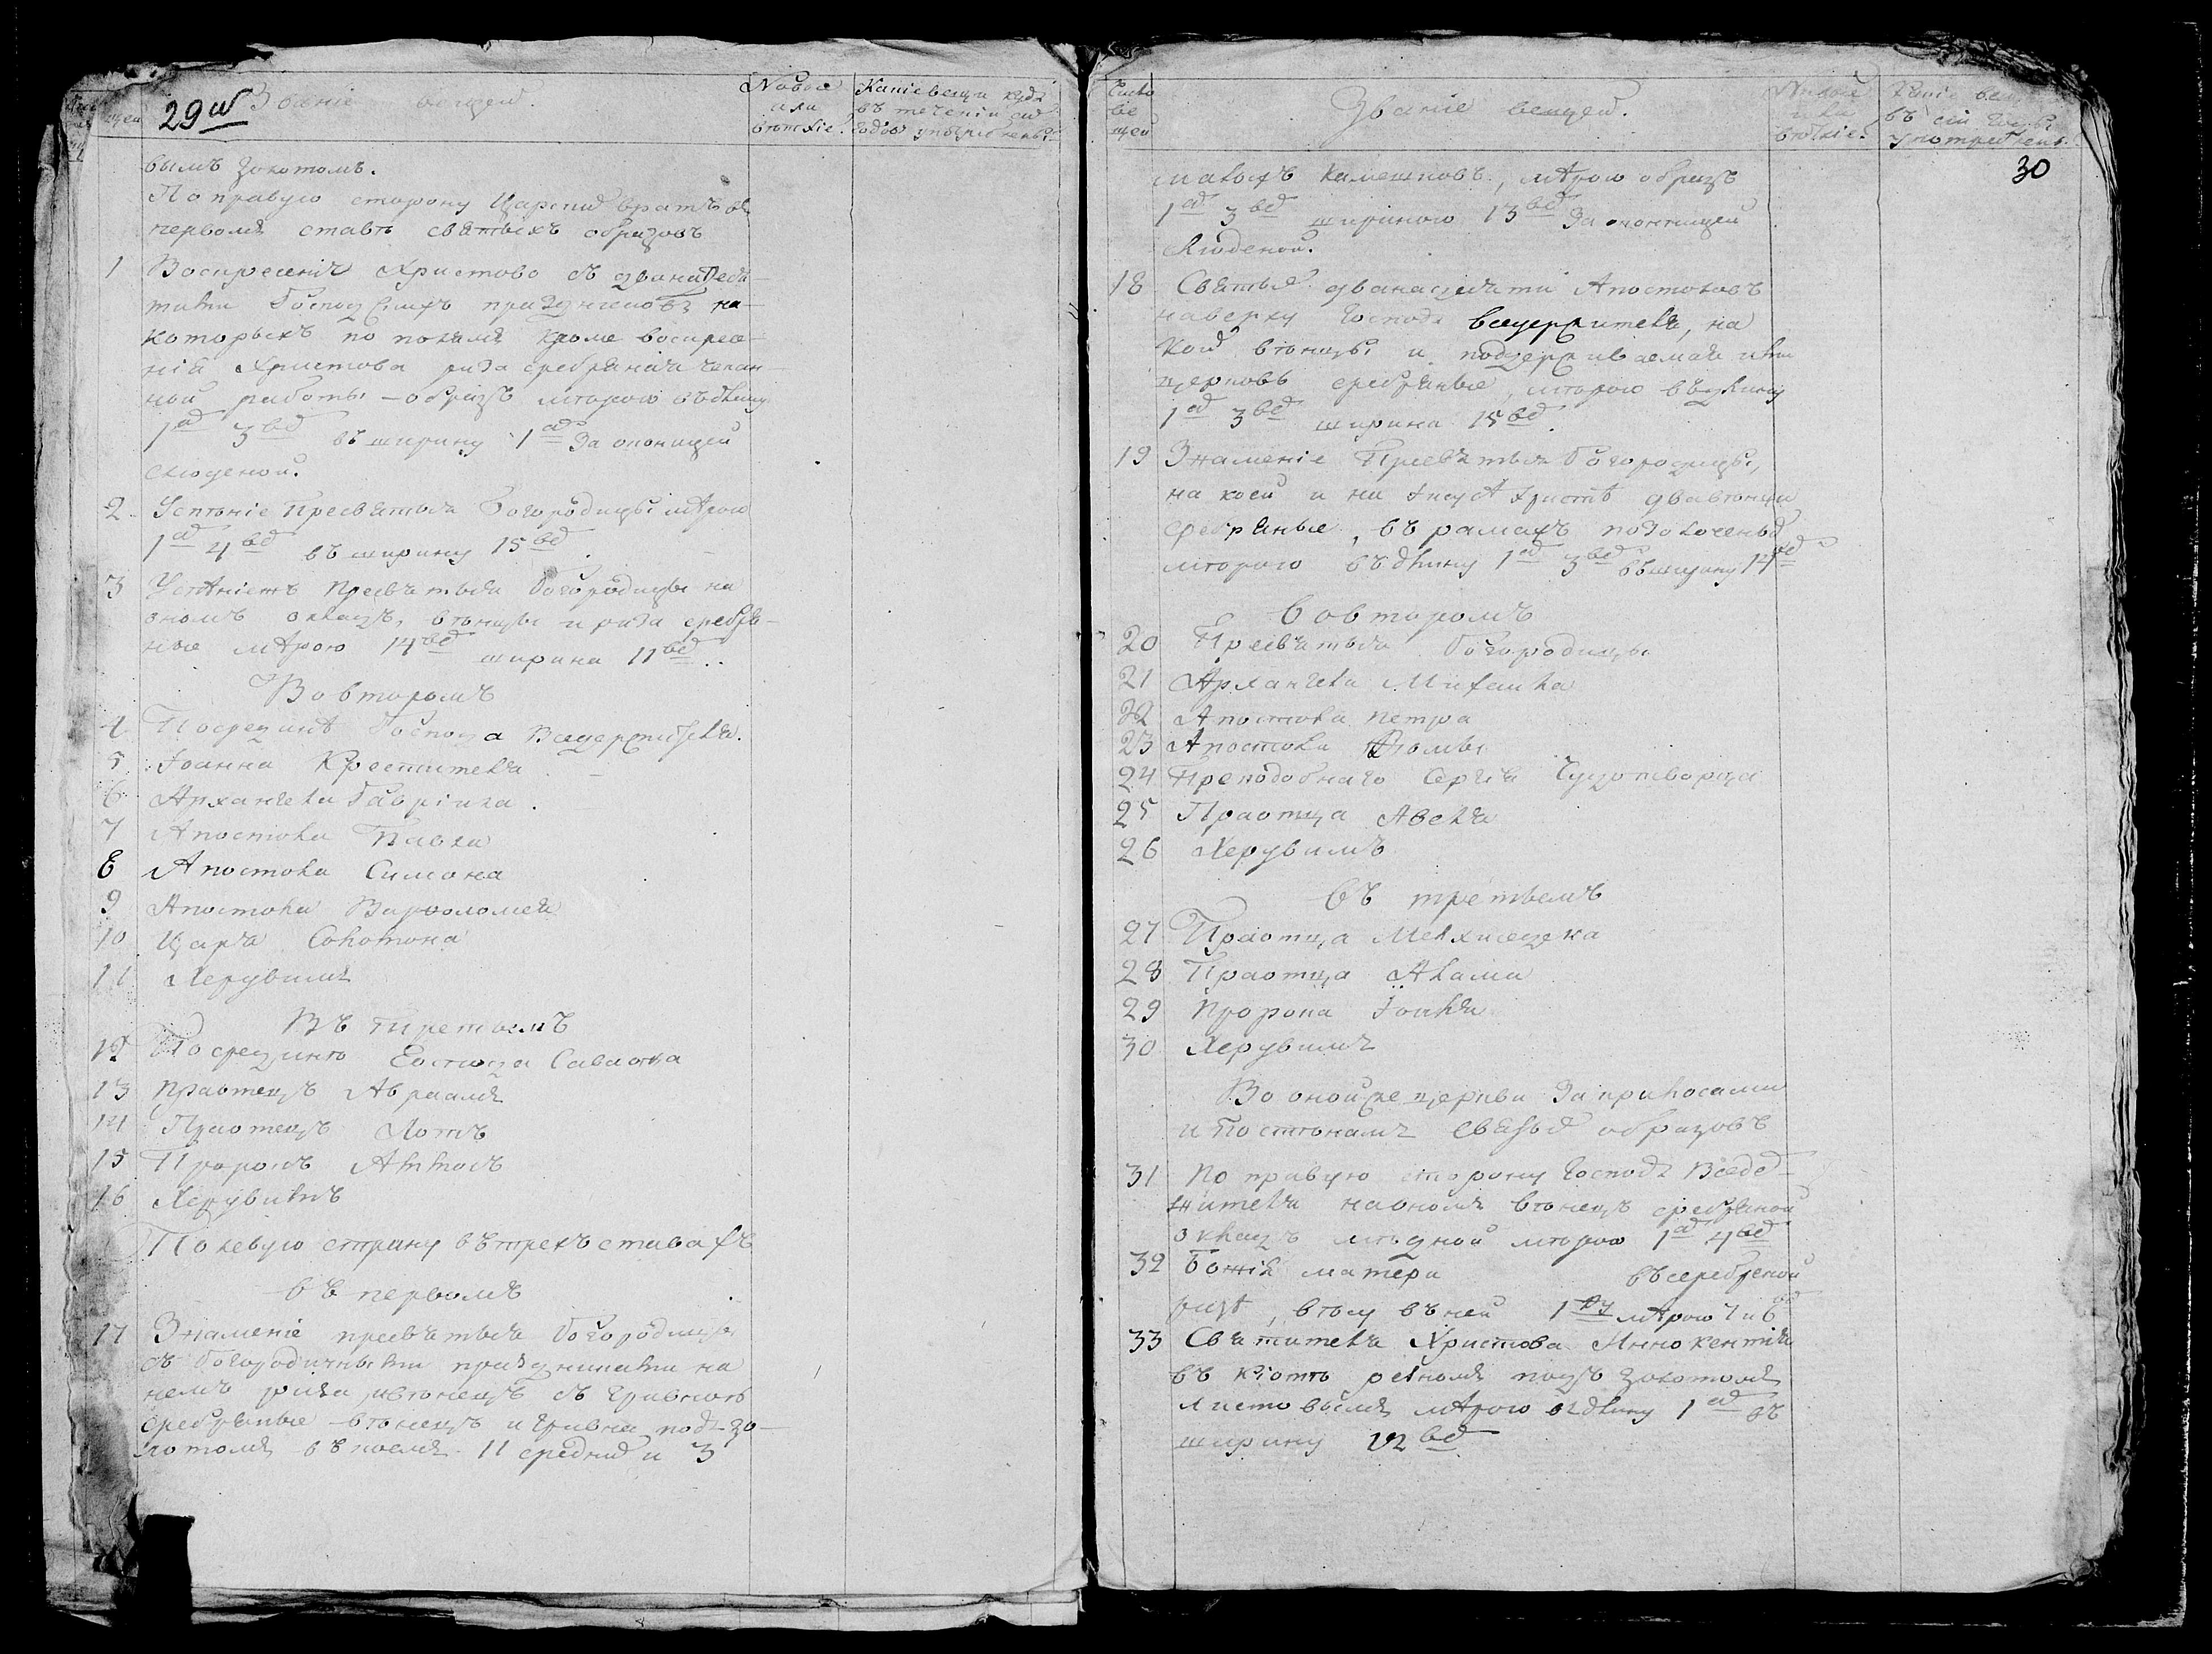 29 об
Званіе вещей.
Новые
или
ветхіе.
Какіе вещи куда
въ теченіи сих
годовъ употреблены.
вымъ золотомъ.
По правую сторону Царских вратъ въ
первомъ ставѣ святыхъ образовъ
1 Воскресеніе Христово съ дванадеся-
тьми Господскихъ праздниковъ на
которыхъ по полямъ кроме воскресе-
нія Христова риза сребряная чекан-
ной работы – образъ мѣрою въ длину
1 а 3 ве въ ширину 1 а За оконницей
слюденой.
2 Успѣніе Пресвятыя Богородицы мѣрою
1 а 4 ве въ ширину 15 ве.
3 Успѣніемъ Пресвятыя Богородицы на
ономъ окладъ, вѣнцы и риза сребря-
ные мѣрою 14 ве ширина 11 ве..
Во второмъ
4 Посрединѣ Господа Вседержителя.
5 Іоанна Крестителя
6 Архангела Гавріила.
7 Апостола Павла
8 Апостола Симона
9 Апостола Варѳоломея
10 Царя Соломона
11 Херувимъ
Въ третьемъ
12 Посрединѣ Господа Саваоѳа
13 Праотецъ Авраамъ
14 Праотецъ Лотъ
15 Пророкъ
16 Херувимъ
По левую страну въ трехъ ставахъ
въ первомъ
17 Знаменіе пресвятыя Богородицы
съ богородичными праздниками на
немъ риза, вѣнецъ съ гривною
сребряные – вѣнецъ и гривна подъ зо-
лотомъ въ коемъ 11 средних и 3
Число
ве
щей
Званіе вещей.
Новые
или
ветхіе.
Какіе вещи
въ сіи годы
употреблены.
30
малыхъ камешковъ, мѣрою образъ
1 а 3 ве шириною 13 ве За оконницей
слюденой.
18 Святые дванадесяти Апостоловъ
наверху Господь вседержитель, на
коих вѣнцы и поддерживаемая ими
церковь сребряные, мѣрою въ длину
1 а 3 ве ширина 15 ве.
19 Знаменіе Пресвятыя Богородицы,
на коей и на Іисусѣ Христѣ два вѣнца
сребряные, въ рамахъ позолоченых
мѣрою въ длину 1 а 3 ве въ ширину 14 ве
Во второмъ
20 Пресвятыя Богородицы
21 Архангела Михаила
22 Апостола Петра
23 Апостола Ѳомы
24 Преподобнаго Сергія Чудотворца
25 Праотца Авеля
26 Херувимъ
Въ третьемъ
27 Праотца Мелхиседека
28 Праотца Адама
29 Пророка Іоиля
30 Херувимъ
Во оной же церкви За крылосами
и по стѣнамъ святых образовъ
31 По правую сторону Господа Вседер-
жителя на ономъ вѣнецъ сребряной
окладъ мѣдной мѣрою 1 а 4 ве
32 Божія матери въ серебреной
ризѣ, вѣсу въ ней 1 мѣрою 7 и 6
33 Святителя Христова Иннокентія
въ кіотѣ резномъ подъ золотомъ
листовымъ мѣрою въ длину 1 а въ
ширину 12 ве